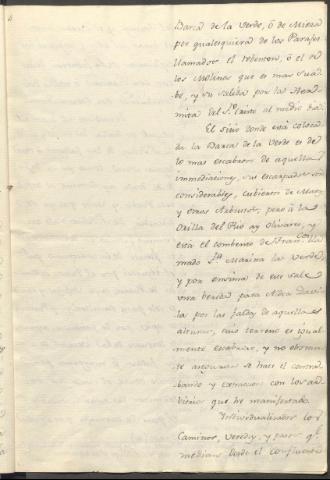 Barca de la Verde, ó de Mieza
por qualesquiera de los Parajes
llamados el rebenton, ó el de
los Molinos que es mas sua-
be, y su salida por la Hermita
del Sto. Cristo al medio dia.
El sitio donde está coloca-
da la Barca de la Verde es de
lo mas escabroso de aquellas
immediaciones, sus escarpados son
considerables, cubiertos de
y otros Arbustos, pero á la
Orilla del Rio ay olivares, y
está el combento de Franc.os lla-
mado Sta. Marina la Verde,
y por encima de este sale
una bereda para Aldea
la por las faldas de aquellas
alturas, cuio terreno es igual-
mente escabroso, y no obstan-
te aseguran se hace el contra-
bando y extraccion con los
que he manifestado.
Yndividualizados los
Caminos, Veredas, y pasos qe.
median desde el confluente